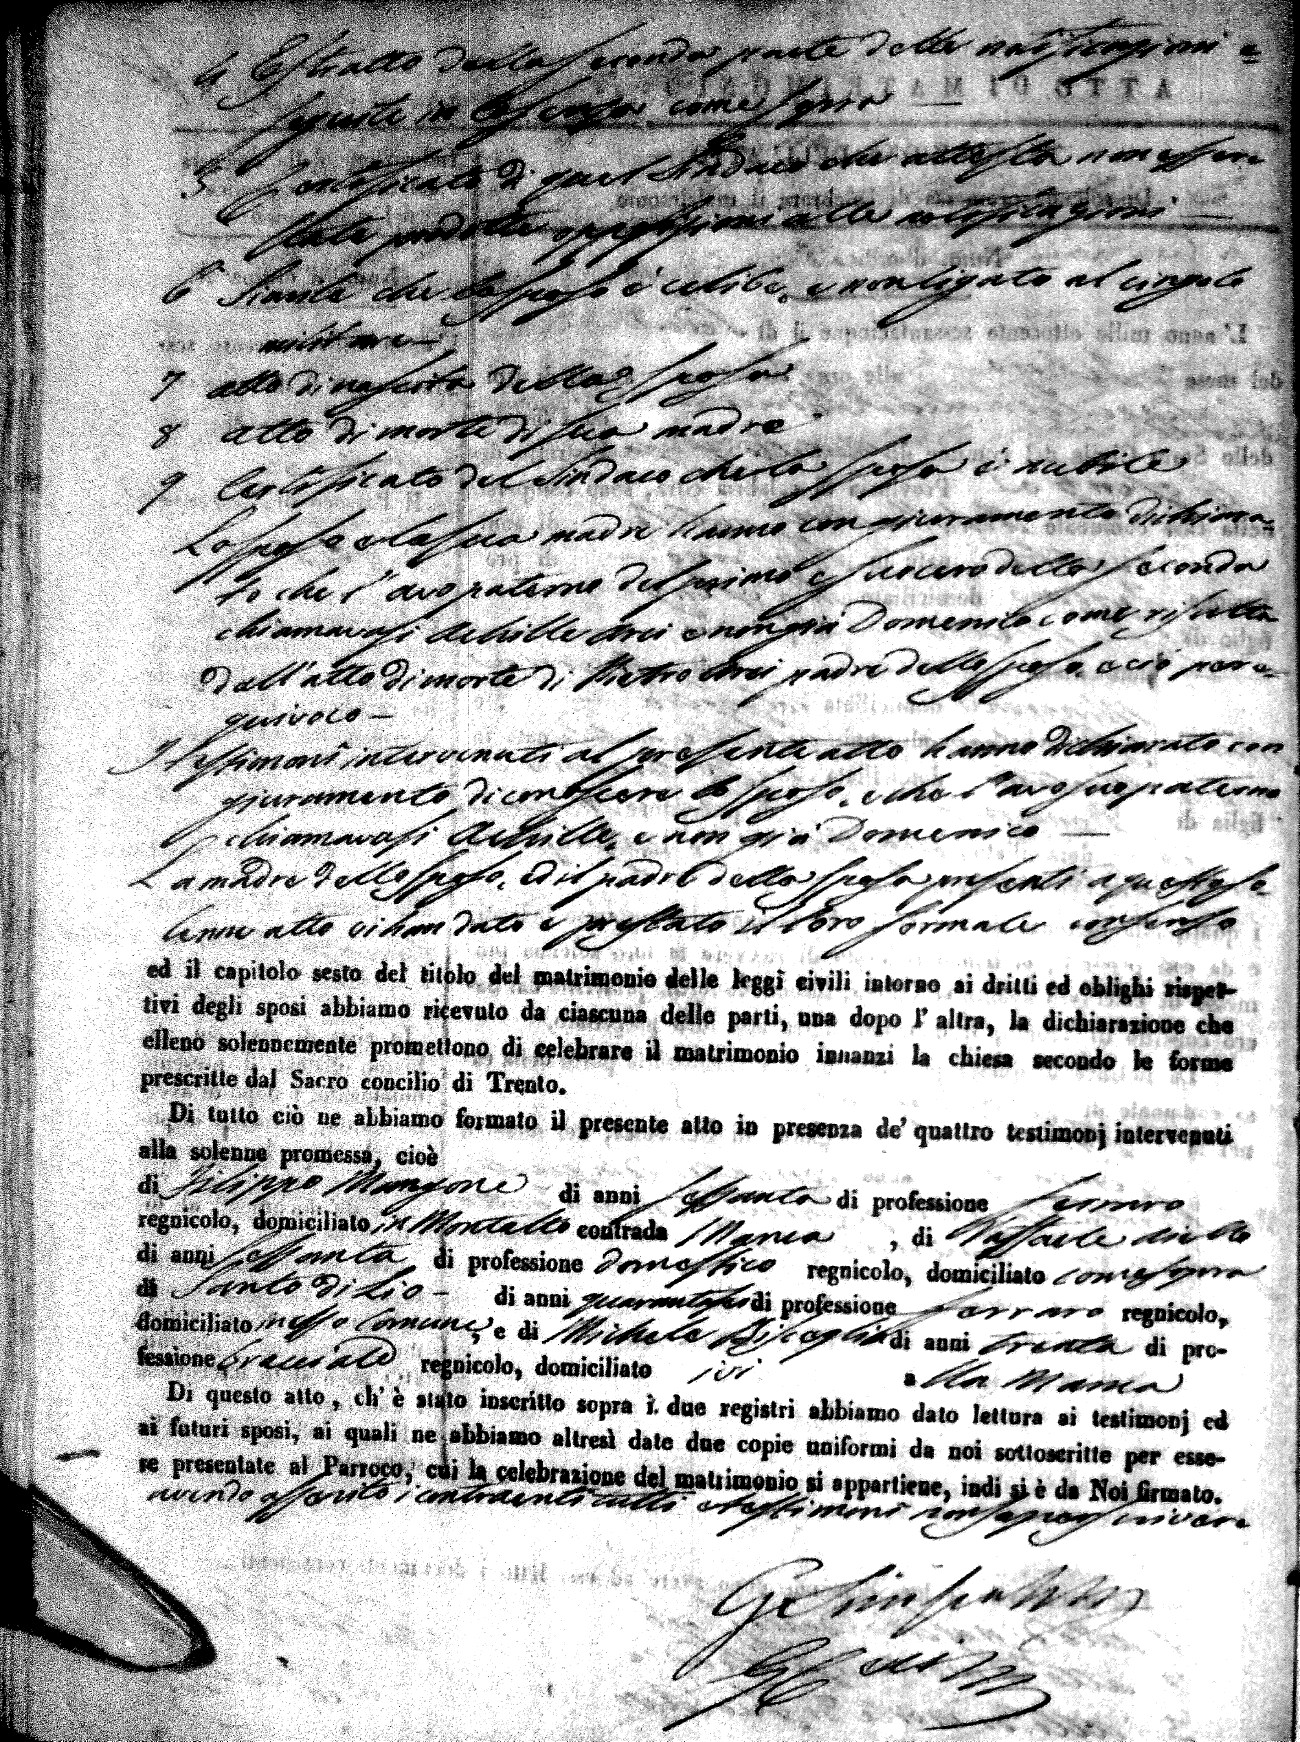 4 Estratto della seconda parte delle notificazioni e=
seguite in Cosenza come sopra —
5 Certificato di quel Sindaco che attesta non essere
state prodotte opposizioni alle notificazioni —
6 Simile che lo sposo è celibe, e non ligato al cingolo
militare —
7 atto di nascita della sposa
8 atto di morte di sua madre
9 Certificato del Sindaco che la sposa è nubile
Lo sposo e la sua madre hanno con giuramento dichiara=
to che l'avo paterno del primo e suocero della seconda
chiamavasi Achille Arci e non già Domenico come risulta
dall'atto di morte di Pietro Arci padre dello sposo, e ciò per e=
quivoco —
I testimoni intervenuti al presente atto hanno dichiarato con
giuramento di conoscere lo sposo, e che l'avo suo paterno
chiamavasi Achille, e non già Domenico —
La madre dello sposo, ed il padre della sposa presenti a questo so=
lenne atto vi han dato e prestato il loro formale consenso
ed il capitolo sesto del titolo del matrimonio delle leggi civili intorno ai dritti ed oblighi rispet-
tivi degli sposi abbiamo ricevuto da ciascuna delle parti, una dopo l'altra, la dichiarazione che
elleno solennemente promettono di celebrare il matrimonio innanzi la chiesa secondo le forme
prescritte dal Sacro concilio di Trento.
Di tutto ciò ne abbiamo formato il presente atto in presenza de' quattro testimonj intervenuti
alla solenne promessa, cioè
di Filippo Mangone di anni sessanta di professione ferraro
regnicolo, domiciliato in Montalto contrada Manca , di Raffaele
di anni sessanta di professione domestico regnicolo, domiciliato come sopra
di Santo di Lio - di anni quarantasei di professione ferraro regnicolo,
domiciliato nello Comune, e di Michele Bisceglia di anni trenta di pro-
fessione bracciale regnicolo, domiciliato ivi alla Manca
Di questo atto, ch'è stato inscritto sopra i due registri abbiamo dato lettura ai testimonj ed
ai futuri sposi, ai quali ne abbiamo altresì date due copie uniformi da noi sottoscritte per esse-
re presentate al Parroco, cui la celebrazione del matrimonio si appartiene, indi si è da Noi firmato.
avendo asserito i contraenti tutti e testimoni non saper scrivere